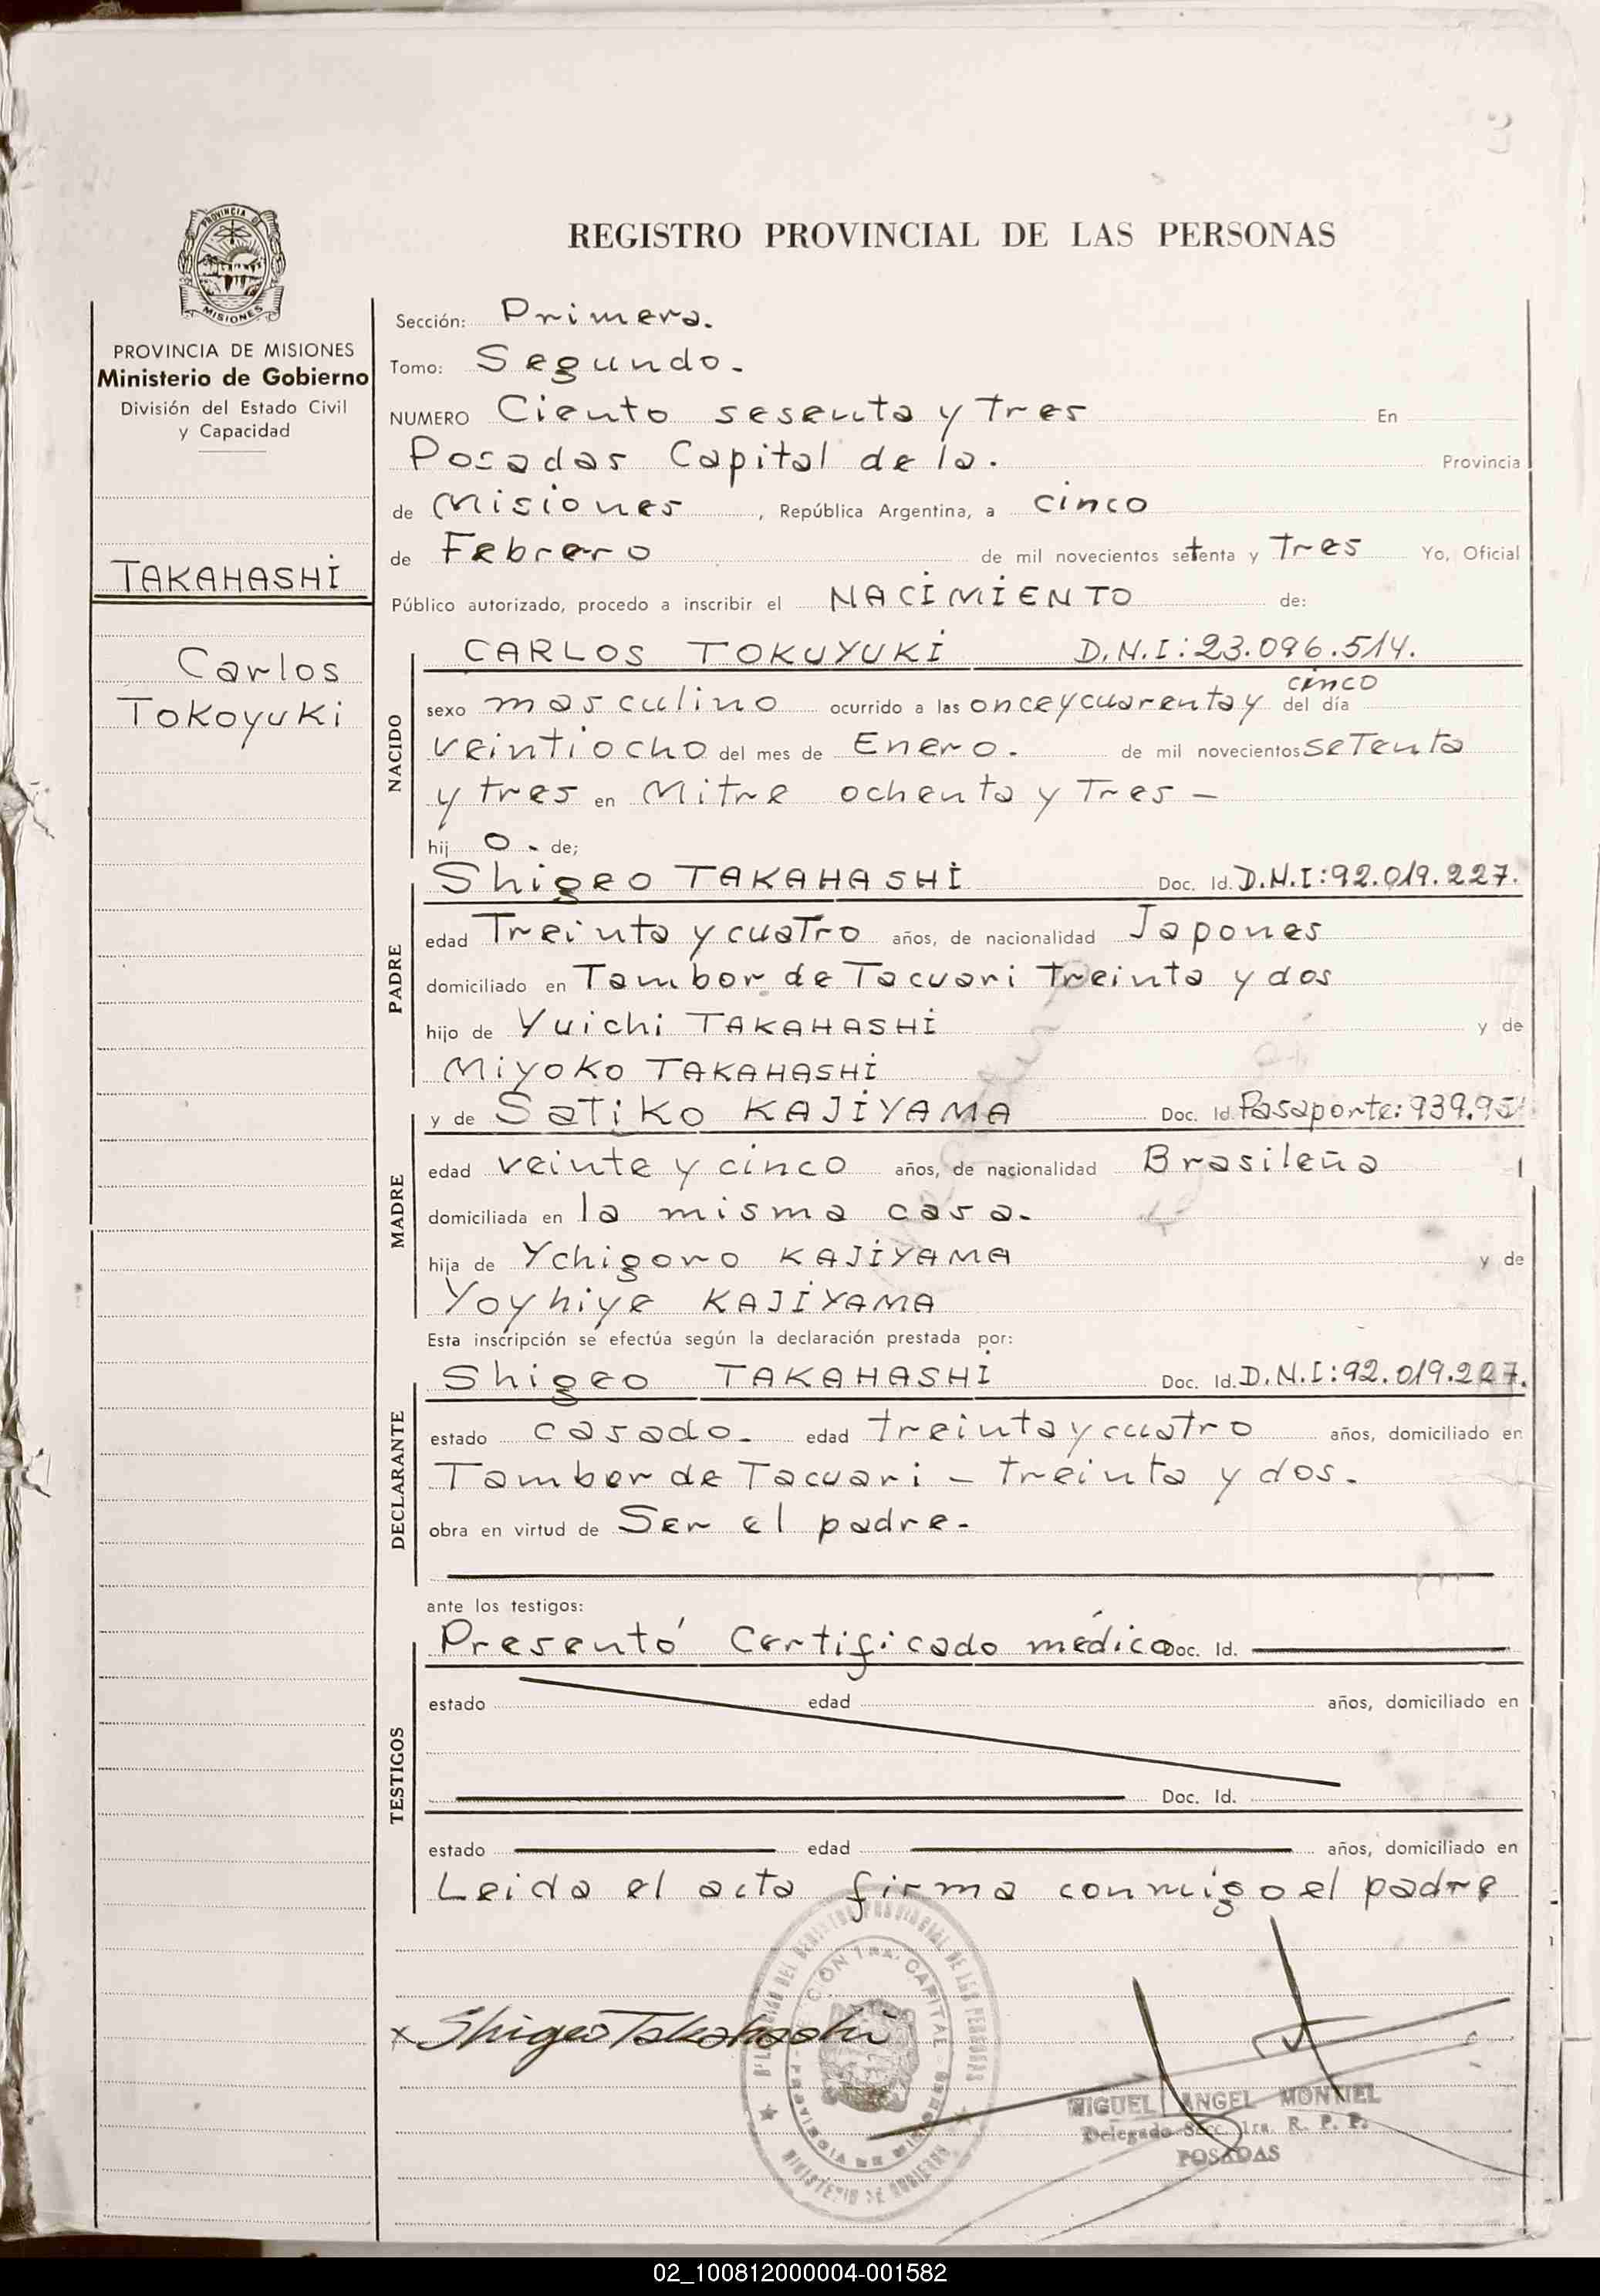 PROVINCIA DE
MISIONES
PROVINCIA DE MISIONES
Ministerio de Gobierno
División del Estado Civil
y Capacidad
TAKAHASHI
Carlos
Tokoyuki
REGISTRO PROVINCIAL DE LAS PERSONAS
Sección: Primera.
Tomo: Segundo.
NUMERO Ciento sesenta y tres En
Posadas Capital de la. Provincia
de Misiones, República Argentina, a cinco
de Febrero de mil novecientos setenta y tres Yo, Oficial
Público autorizado, procedo a inscribir el NACIMIENTO de:
NACIDO
CARLOS TOKUYUKI D.N.I:23.096.514.
sexo masculino ocurrido a las once y cuarenta y cinco del día
veintiocho del mes de Enero. de mil novecientos setenta
y tres en Mitre ochenta y Tres -
hij o. de;
PADRE
Shigeo TAKAHASHI Doc. Id. D.N.I:92.019.227.
edad Treinta y cuatro años, de nacionalidad Japones
domiciliado en Tambor de Tacuari treinta y dos
hijo de Yuichi TAKAHASHI y de
Miyoko TAKAHASHI
MADRE
y de Satiko KAJIYAMA Doc. Id. Pasaporte:
edad veinte y cinco años, de nacionalidad Brasileña
domiciliada en la misma casa.
hija de Ychigoro KAJIYAMA y de
Yoyhiye KAJIYAMA
Esta inscripción se efectúa según la declaración prestada por:
DECLARANTE
Shigeo TAKAHASHI Doc. Id. D.N.I:92.019.227.
estado casado. edad treinta y cuatro años, domiciliado en
Tambor de Tacuari - treinta y dos.
obra en virtud de Ser el padre.
ante los testigos:
TESTIGOS
Presentó Certificado médico Doc. Id.
estado edad años, domiciliado en
Doc. Id.
estado edad años, domiciliado en
Leida el acta firma conmigo el padre
x Shigeo Takahashi
MIGUEL ANGEL MONTIEL
Delegado Secc. 1ra. R. P. P.
POSADAS
02_100812000004-001582